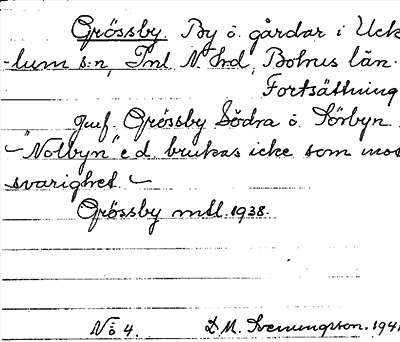 Grössby. By o. gårdar i Uck-
lum s:n, Inl N Hrd, Bohus län.
Fortsättning
Jmf. Grössby Södra o. Sörbyn.
- "Nolbyn" e d brukas icke som mot-
svarighet. -
Grössby mtl. 1938.
No 4. D. M. Svenungsson. 1941